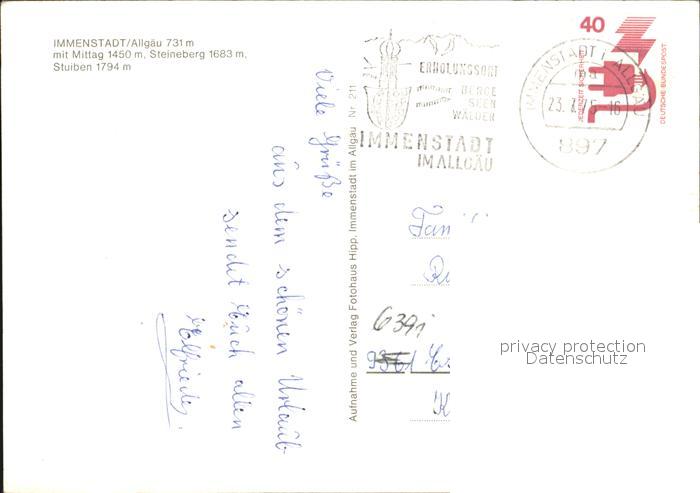 IMMENSTADT/Allgäu 731 m
mit Mittag 1450 m, Steineberg 1683 m,
Stuiben 1794 m
Viele Grüße
aus dem schönen Urlaub
sendet Euch allen
Elfriede.
Aufnahme und Verlag Fotohaus Hipp, Immenstadt im Allgäu Nr. 211
ERHOLUNGSORT
BERGE
SEEN
WÄLDER
IMMENSTADT
IM ALLGÄU
IMMENSTADT i. ALLGÄU
23.7.75-16
897
40
JEDERZEIT SICHERHEIT
DEUTSCHE BUNDESPOST
Fam
privacy protection
Datenschutz